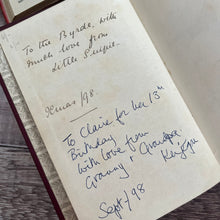 To the Byrds, with
much love from
Little
Xmas /98.
To Claire for her 13th
Birthday
With love from
Granny &
Sept/98